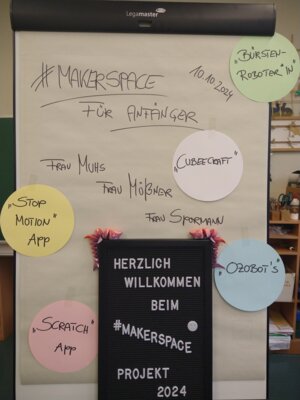 Legamaster
#MAKERSPACE
FÜR ANFÄNGER
10.10.2024
„BÜRSTEN-
ROBOTER*IN"
FRAU MUHS
FRAU MÖßNER
"CUBEECRAFT"
„STOP
MOTION"
APP
„OZOBOT'S"
„SCRATCH"
APP
HERZLICH
WILLKOMMEN
BEIM
#MAKERSPACE
PROJEKT
2024